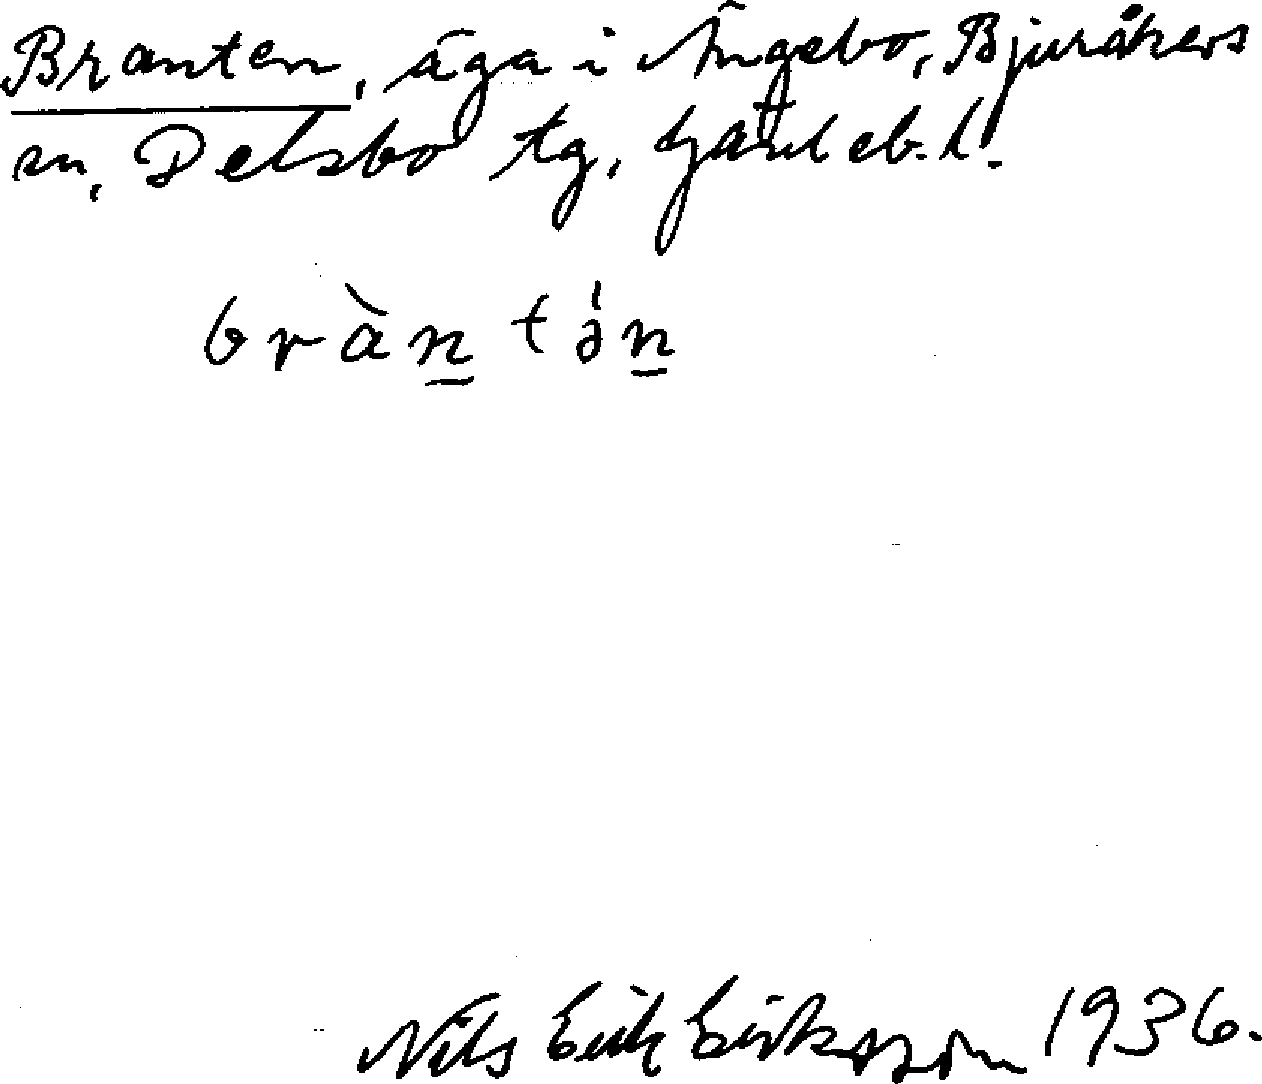 Branten, äga i Ängebo, Bjuråkers
sn, Delsbo tg, Gävleb. l.
bràntə́n
Nils Erik Eriksson 1936.